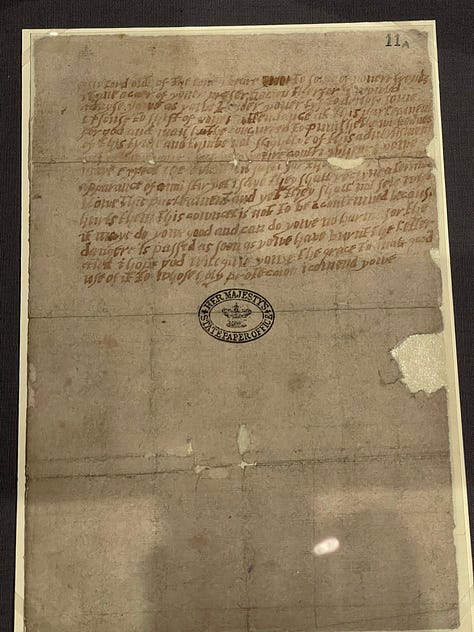 11A
my lord out of the love i beare to some of youere frendz
i have a caer of youer preservacion therfor i would
advyse yowe as yowe tender youer lyf to devys some
excuse to shift of youer attendance at this parleament
for god and man hath concurred to punishe the wickednes
of this tyme and thinke not slightlye of this advertisment
but youre contri wheare yowe
maye expect the event in safti for
apparance of anni stir yet i saye they shall receyve a terrible
blowe this parleament and yet they shall not seie who
hurts them this cowncel is not to be contemned because
it maye do yowe good and can do yowe no harme for the
dangere is passed as soon as yowe have burnt the letter
and i hope god will give yowe the grace to mak good
use of it to whose holy proteccion i comend yowe
HER MAJESTY'S
STATE PAPER OFFICE